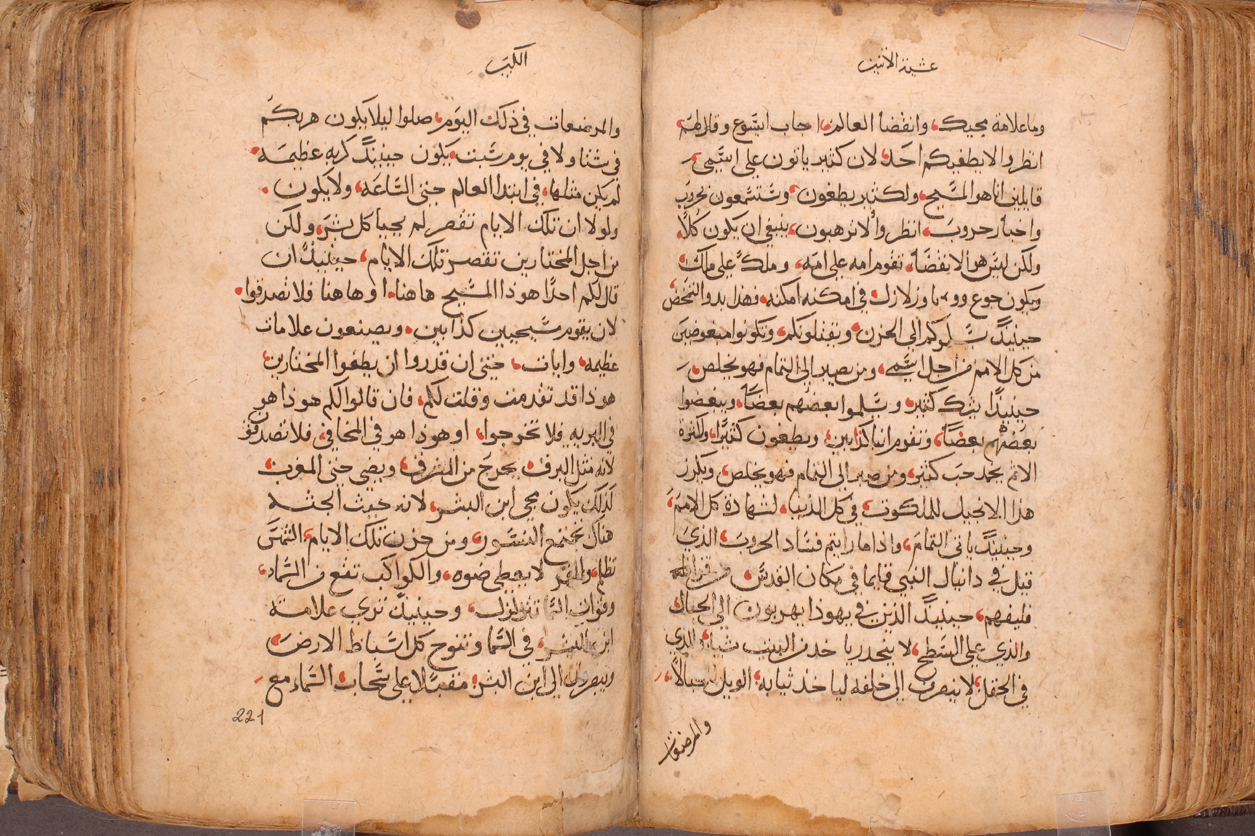 عشية الاثنين
وما علامة مجيك، وانقضا العالم، اجاب ايسوع وقال لهم
انظروا لا يطغيكم احد، لان كثير ياتون على اسمى
قايلين انا هو المسيح، ولكثير يطغون، وستسمعون بحروب
واخبار حروب، انظروا لا ترهبون، ينبغى ان يكون كلا،
ولكن ليس هو الانقضا، تقوم امه على امه، وملك على ملك
ويكون جوع ووبا وزلازل، فى امكنه امكنه، وهذا بدو المخض
حينيذ يسلموكم الى الحزن، ويقتلونكم، وتكونوا مبغوضين
من كل الامم من اجل اسمى، ومن يصبر الى التمام فهو يخلص،
حينيذا يشك كثير، وتسلموا بعضهم بعضا، ويبغضوا
بعضهم بعضا، وتقوم انبيا كذابين، ويطغون كثيرا، ولكثرة
الاثم يجمد حب كثير، ومن صبر الى التمام فهو يخلص، ويكرز
هذا الانجيل للملكوت، فى كل الدنيا، لشهادة كل الامم،
وحينيذ ياتى التمام، واذا ما رايتم فساد الحروب، الذى
قيل فى دانيال النبى قايما فى مكان القدس، من قرا
فليفهم، حينيذ الذين فى يهوذا يهربون الى الجبال
والذى على السطح، لا ينحدر ياخذ من البيت شيا، والذى
فى الحقل، لا ينصرف الى خلفه لياخذ ثيابه، الويل للحبالا،
والمرضعات
الكبير
والمرضعات فى ذلك اليوم، صلوا ليلا يكون هربكم
فى شتا ولا فى يوم سبت، يكون حينيذ كربه عظيمه،
لم يكن مثلها، فى ابتدا العالم حتى الساعه، ولا يكون،
ولولا ان تلك الايام تقصر لم يحيا كل بشر، ولكن
من اجل المختارين تقصر تلك الايام، حينيذ ان
قال لكم احدا هوذا المسيح هاهنا، او هاهنا فلا تصدقوا،
لان يقوم مسيحيين كذابين، ويصنعون علامات
عظيمه، وايات، حتى ان قدروا ان يطغوا المختارين
هوذا قد تقدمت وقلت لكم، فان قالوا لكم هوذا هو
فى البريه فلا تخرجوا، او هوذا هو فى المخافى، فلا تصدقوا
لانه مثل البرق، يخرج من المشرق، ويضى حتى المغرب
كذلك يكون مجى ابن البشر، لانه حيث الجثه
هناك تجتمع النسور، ومن حزن تلك الايام، الشمس
تظلم، والقمر لا يعطى ضوه، والكواكب تقع من السماء،
وقوات السما تتزلزل، وحينيذ ترى علامة
ابن البشر، فى السما وتنوح كل اسباط الارض،
وينصرون الى ابن البشر، مقبلا على سحاب، السماء مع
221